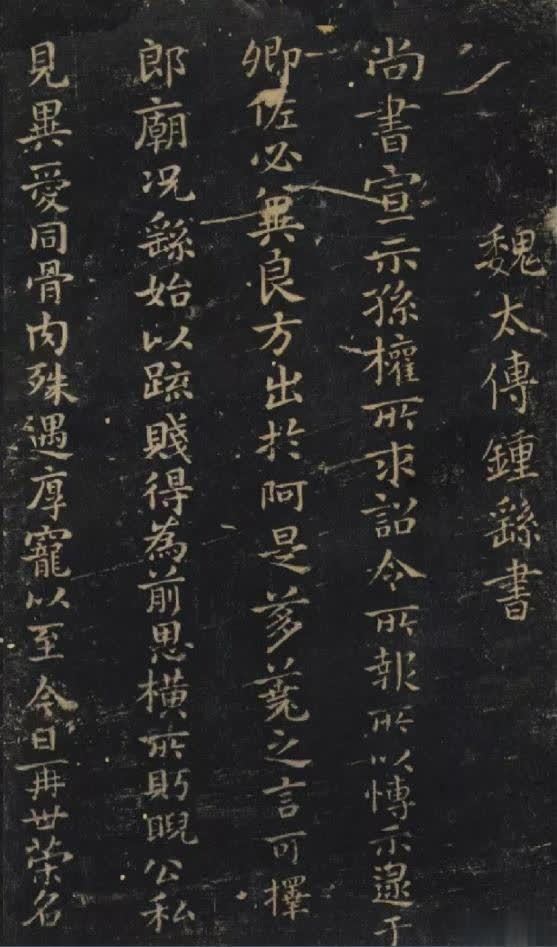 魏太傅鍾繇書
尚書宣示孫權所求詔令所報所以博示逮于
卿佐必冀良方出於阿是芻蕘之言可擇
郎廟況繇始以疏賤得為前恩橫所盻睨公私
見異愛同骨肉殊遇厚寵以至今日再世荣名